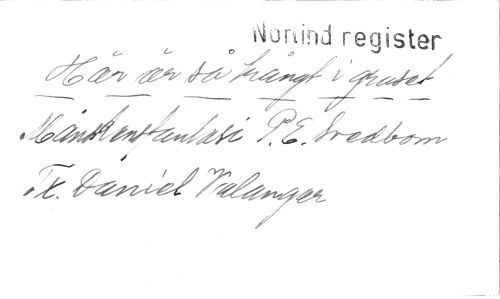 Norlind register
Här är så trångt i gruset
Månskensfantasi P.E. Svedbom
Tx. Daniel Valanger